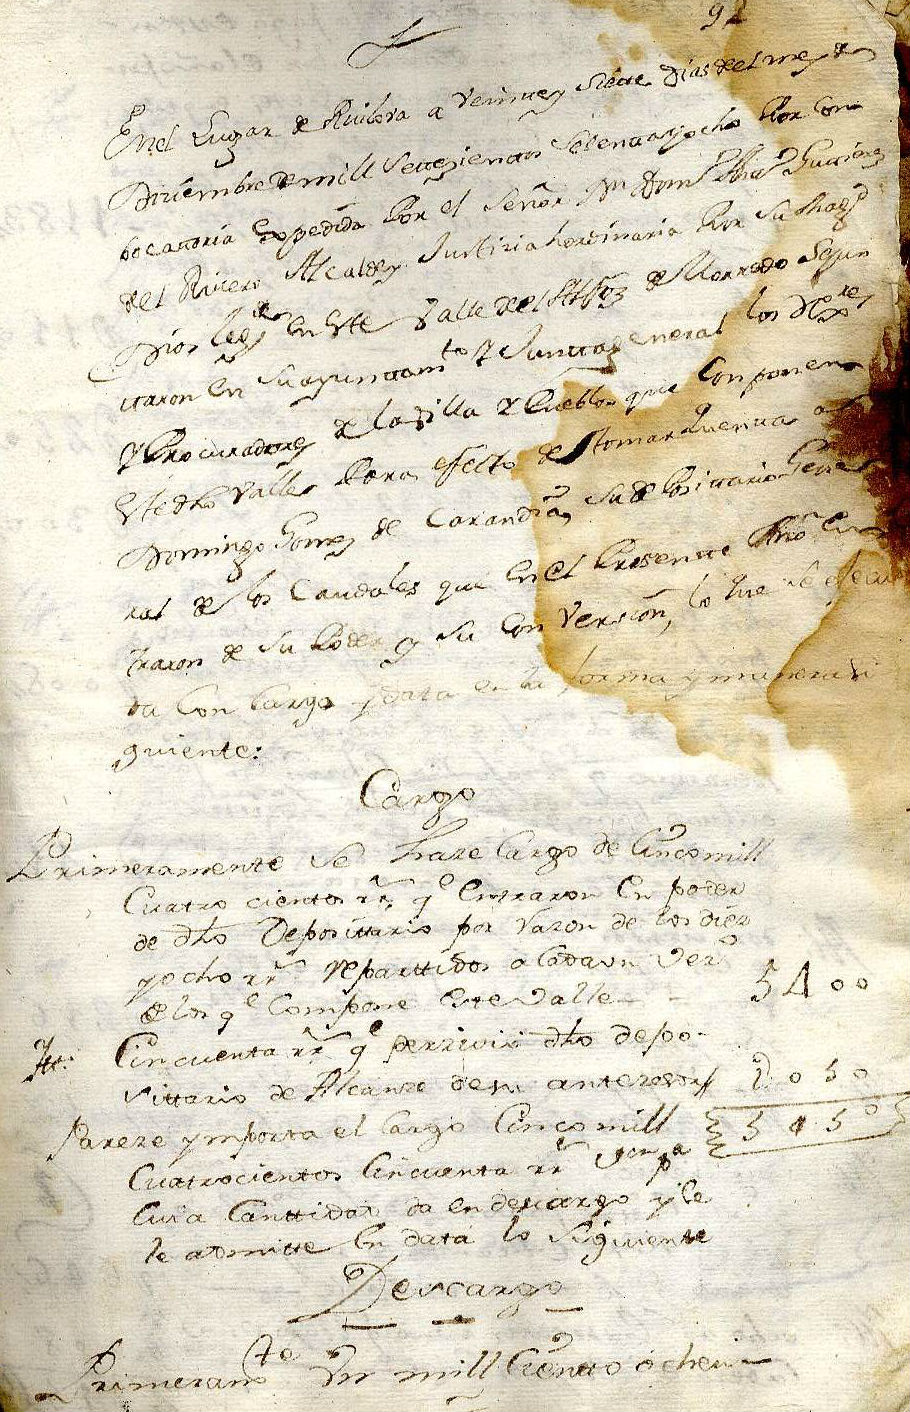 92
En el Lugar de Ruilova a veinte y siete dias del mes de
Diziembre de mill settezientos setenta y ocho Por Con
bocattoria expedida Por el Señor Dn Domgo Guttierrez
del Rivero Alcalde y Justizia hordinaria Por Su Magd
Dios le gde en este Valle del Alfoz de Lloredo se jun
ttaron en Su ayuntamto y Juntta general los
y Procuradores de la Villa y Pueblos que componen
este dho Valle Para efecto de tomar quentas a
Domingo Gomez de Carandia, su de Posittario Gene
ral de los Caudales que en el Presentte Año en
traron de su Poder y su conversion, lo que se efecu
ta con Cargo y data en la forma y manera si
guiente:
Cargo
Primeramente se haze Cargo de Cinco mill
Cuatro cientos rrs qe entraron en poder
de dho Deposittario por razon de los diez
y ocho rrs reparttidos a Cada un vezo
de los qe compone este Valle 5400
Itt. Cincuenta rrs qe perzivió dho depo-
sittario de Alcanze de su antezesor 050
Pareze ymporta el Cargo Cinco mill 5450
Cuatrocientos Cincuenta rrs
Cuia Canttidad da en descargo y se
le admitte en data lo siguiente
Descargo
Primeramte Un mill Ciento ochen-